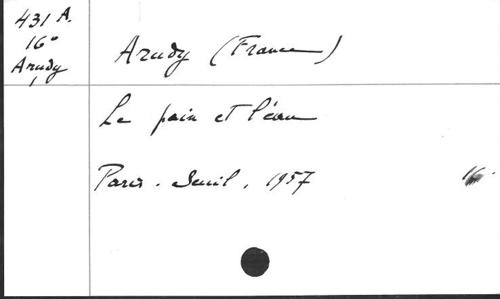 431 A.
16°
Arudy
1
Arudy (France)
Le pain et l'eau
Paris. Seuil, 1957
16.